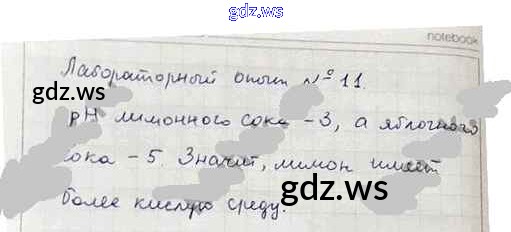 gdz.ws
notebook
Лабораторный опыт №11.
gdz.ws
pH лимонного сока - 3, а яблочного
сока - 5. Значит, лимон имеет
gdz.ws
более кислую среду.